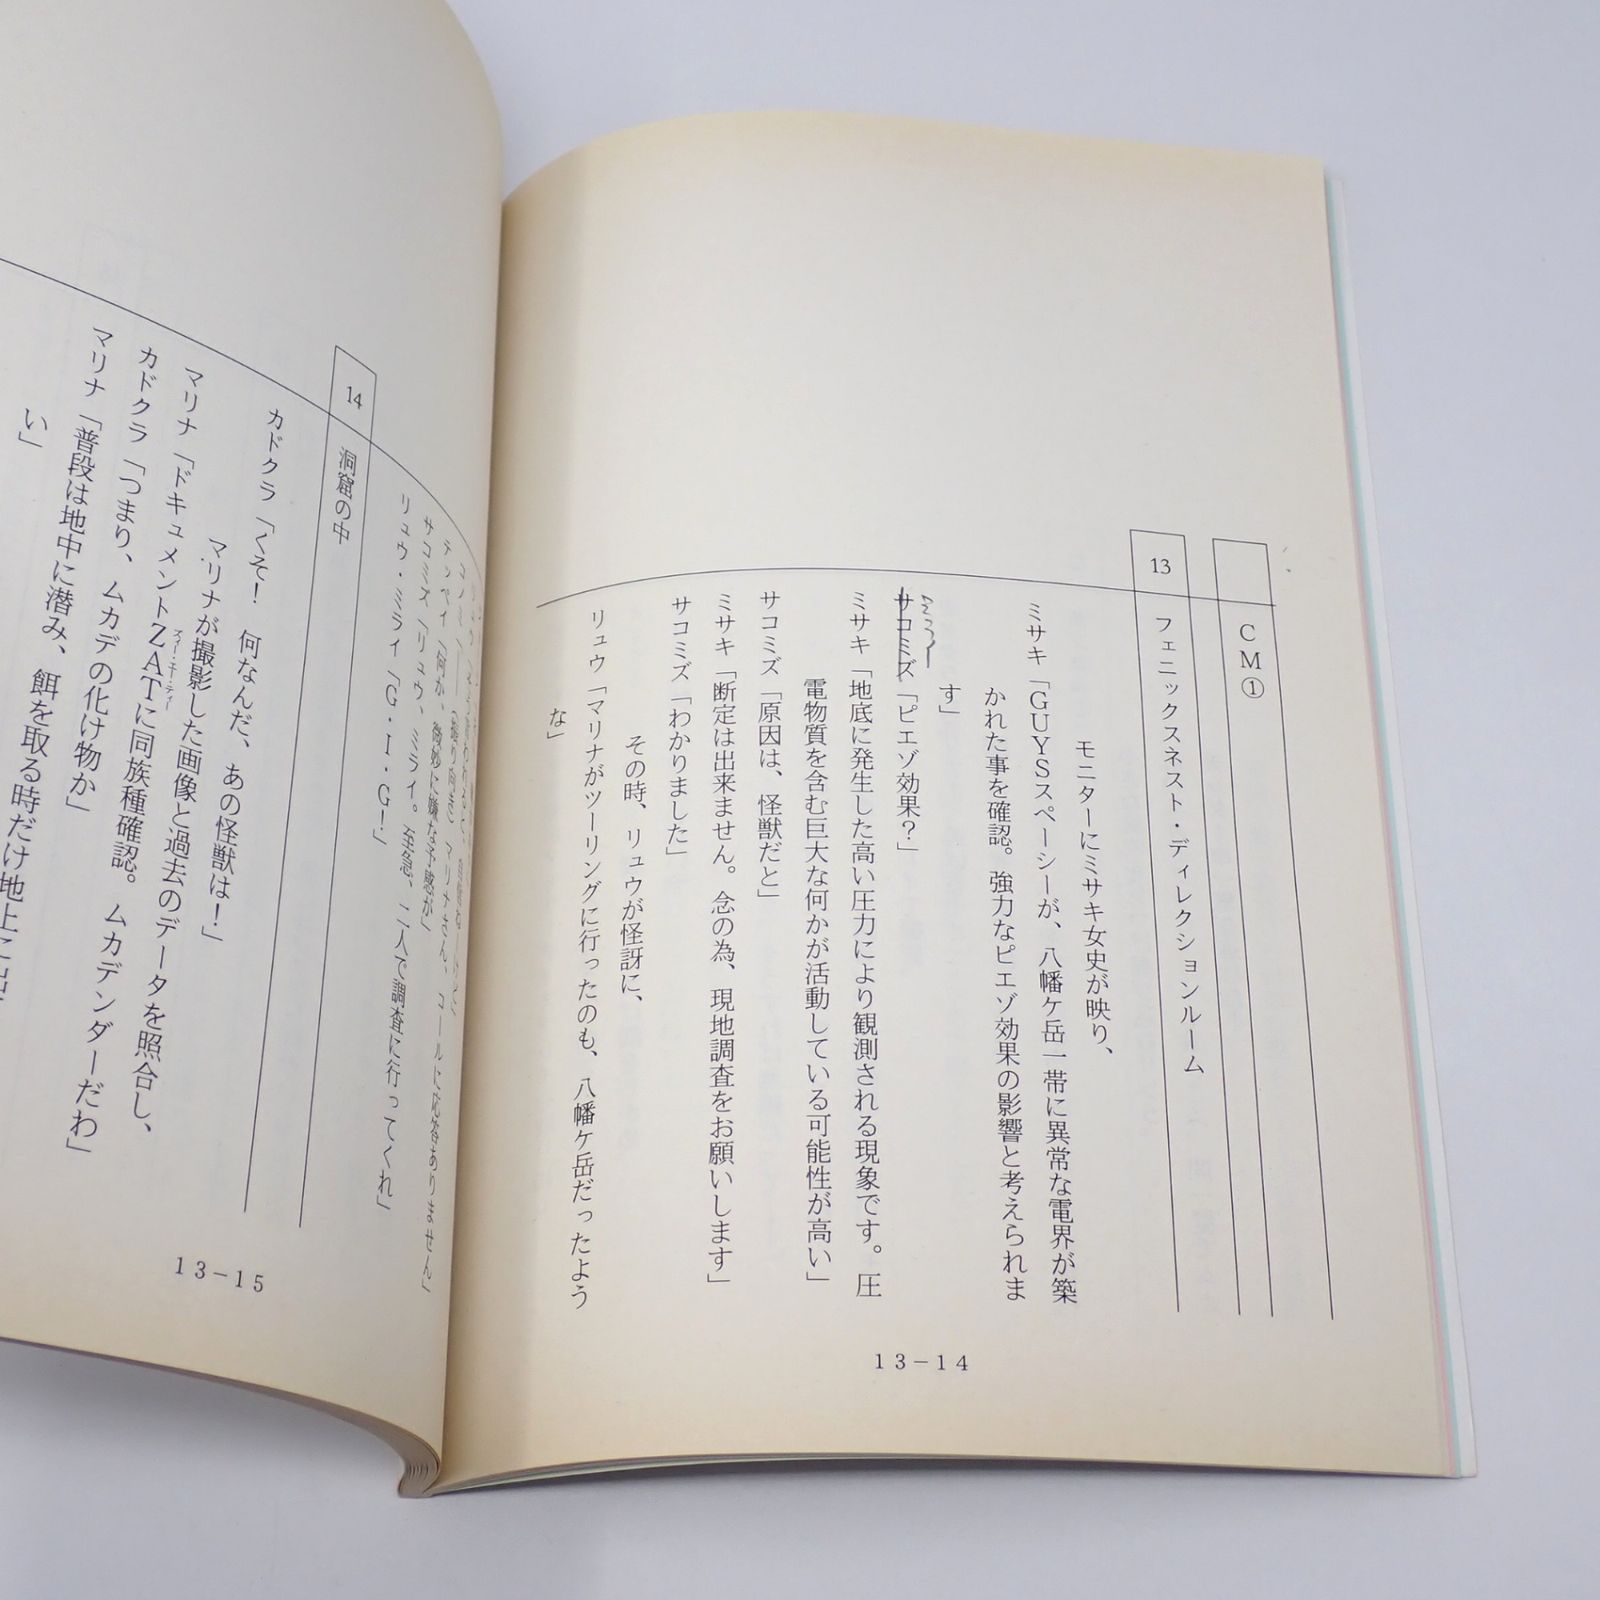 CM①
13
フェニックスネスト・ディレクションルーム
モニターにミサキ女史が映り、
ミサキ「GUYSスペーシーが、八幡ケ岳一帯に異常な電界が築
かれた事を確認。強力なピエゾ効果の影響と考えられま
す」
サコミズ「ピエゾ効果?」
ミサキ「地底に発生した高い圧力により観測される現象です。圧
電物質を含む巨大な何かが活動している可能性が高い」
サコミズ「原因は、怪獣だと」
ミサキ「断定は出来ません。念の為、現地調査をお願いします」
サコミズ「わかりました」
その時、リュウが怪訝に、
リュウ「マリナがツーリングに行ったのも、八幡ケ岳だったよう
な」
13-14
テッペイ「何か、微妙に嫌な予感が」
サコミズ「リュウ、ミライ。至急、二人で調査に行ってくれ」
リュウ・ミライ「G・I・G!」
14
洞窟の中
カドクラ「くそ! 何なんだ、あの怪獣は!」
マリナが撮影した画像と過去のデータを照合し、
マリナ「ドキュメントZATに同族種確認。ムカデンダーだわ」
ズィー・エー・ティー
カドクラ「つまり、ムカデの化け物か」
マリナ「普段は地中に潜み、餌を取る時だけ地上に
い」
13-15